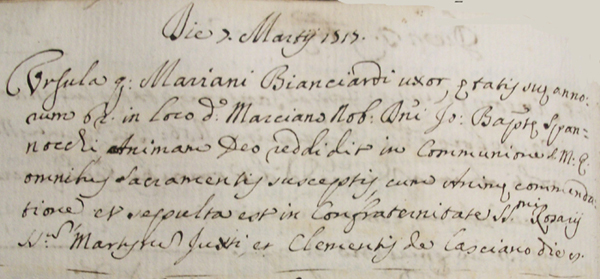 Die 7. Martij 1717.
Ursula q: Mariani Bianciardi uxor, ętatis suę anno:
rum 62. in loco dº. Marciano Nob: Dni Jo: Baptę Span=
nocchi Animam Deo reddidit in Communione S. M. E.
omnibus sacramentis susceptis cum animę commenda
tione et sepulta est in Confraternitate SSmi Rosarij
SS. Martyrum Justi et Clementis de Casciano die